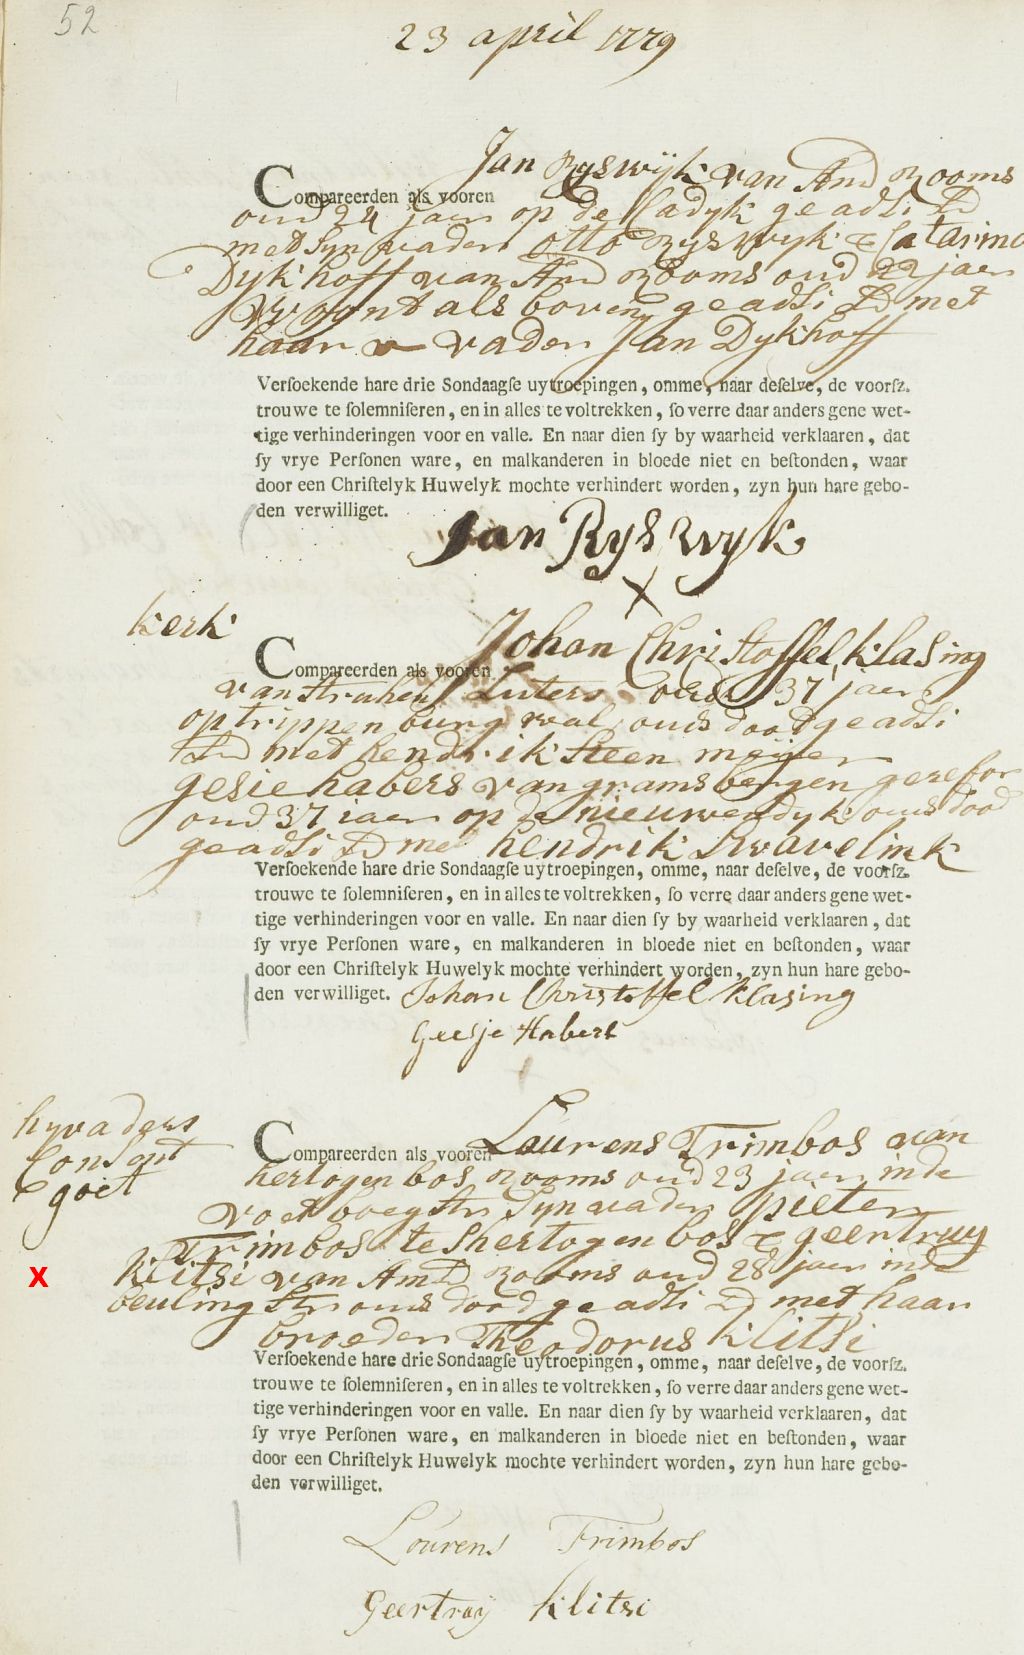 52
23 april 1779
Jan Ryswijk van Amd Rooms
Compareerden als vooren
oud 24 jaer op de Cadyk geadsi Td
met syn vader Otto Ryswyk & Catarina
Dykhoff van Amd Rooms oud 22 jaer
woont als boven geadsi Td met
haar vader Jan Dykhoff
Verſoekende hare drie Sondaagſe uytroepingen, omme, naar deſelve, de voorſz.
trouwe te ſolemniſeren, en in alles te voltrekken, ſo verre daar anders gene wet-
tige verhinderingen voor en valle. En naar dien ſy by waarheid verklaaren, dat
ſy vrye Perſonen ware, en malkanderen in bloede niet en beſtonden, waar
door een Chriſtelyk Huwelyk mochte verhindert worden, zyn hun hare gebo-
den verwilliget.
Jan Ryswyk
X
kerk
Johan Christoffel klasing
Compareerden als vooren
van Luters oud 37 jaer
op trippenburgwal ouds dood geadsi
Td met hendrik Steen meijer
gesie habers van gramsbergen gerefor
oud 37 jaer op de nieuwendyk ouds dood
geadsi Td met hendrik Swavelink
Verſoekende hare drie Sondaagſe uytroepingen, omme, naar deſelve, de voorſz.
trouwe te ſolemniſeren, en in alles te voltrekken, ſo verre daar anders gene wet-
tige verhinderingen voor en valle. En naar dien ſy by waarheid verklaaren, dat
ſy vrye Perſonen ware, en malkanderen in bloede niet en beſtonden, waar
door een Chriſtelyk Huwelyk mochte verhindert worden, zyn hun hare gebo-
den verwilliget. Johan Christoffel Klasing
Geesje Habert
hy vaders
Consent
goet
Laurens Trimbos van
Compareerden als vooren
hertogenbos Rooms oud 23 jaer inde
voetboegstr syn vader pieter
Trimbos te Shertogenbos & geertruy
X
klitsi van Amd Rooms oud 28 jaer inde
beulingstr ouds dood geadsi Td met haar
broeder Theodorus klitsi
Verſoekende hare drie Sondaagſe uytroepingen, omme, naar deſelve, de voorſz.
trouwe te ſolemniſeren, en in alles te voltrekken, ſo verre daar anders gene wet-
tige verhinderingen voor en valle. En naar dien ſy by waarheid verklaaren, dat
ſy vrye Perſonen ware, en malkanderen in bloede niet en beſtonden, waar
door een Chriſtelyk Huwelyk mochte verhindert worden, zyn hun hare gebo-
den verwilliget.
Lourens Trimbos
Geertruÿ Klitsi